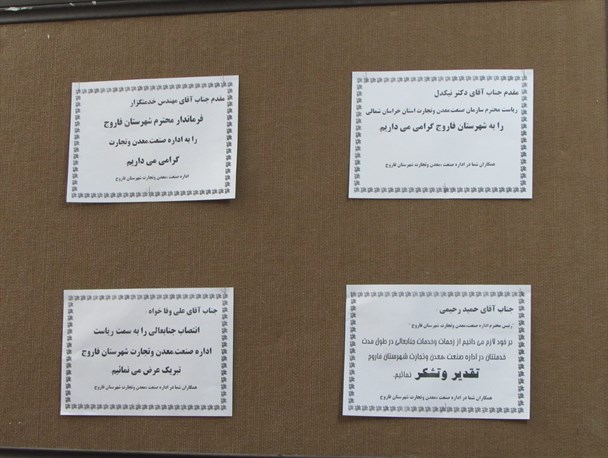 مقدم جناب آقای دکتر نیکدل
ریاست محترم سازمان صنعت،معدن وتجارت استان خراسان شمالی
را به شهرستان فاروج گرامی می داریم
همکاران شما در اداره صنعت ،معدن وتجارت شهرستان فاروج
مقدم جناب آقای مهندس خدمتگزار
فرماندار محترم شهرستان فاروج
را به اداره صنعت،معدن وتجارت
گرامی می داریم
اداره صنعت ،معدن وتجارت شهرستان فاروج
جناب آقای حمید رحیمی
رئیس محترم اداره صنعت،معدن وتجارت شهرستان فاروج
بر خود لازم می دانیم از زحمات وخدمات جنابعالی در طول مدت
خدمتتان در اداره صنعت ،معدن وتجارت شهرستان فاروج
تقدیر وتشکر نمائیم.
همکاران شما در اداره صنعت ،معدن وتجارت شهرستان فاروج
جناب آقای علی وفا خواه
انتصاب جنابعالی را به سمت ریاست
اداره صنعت،معدن وتجارت شهرستان فاروج
تبریک عرض می نمائیم
همکاران شما در اداره صنعت ،معدن وتجارت شهرستان فاروج